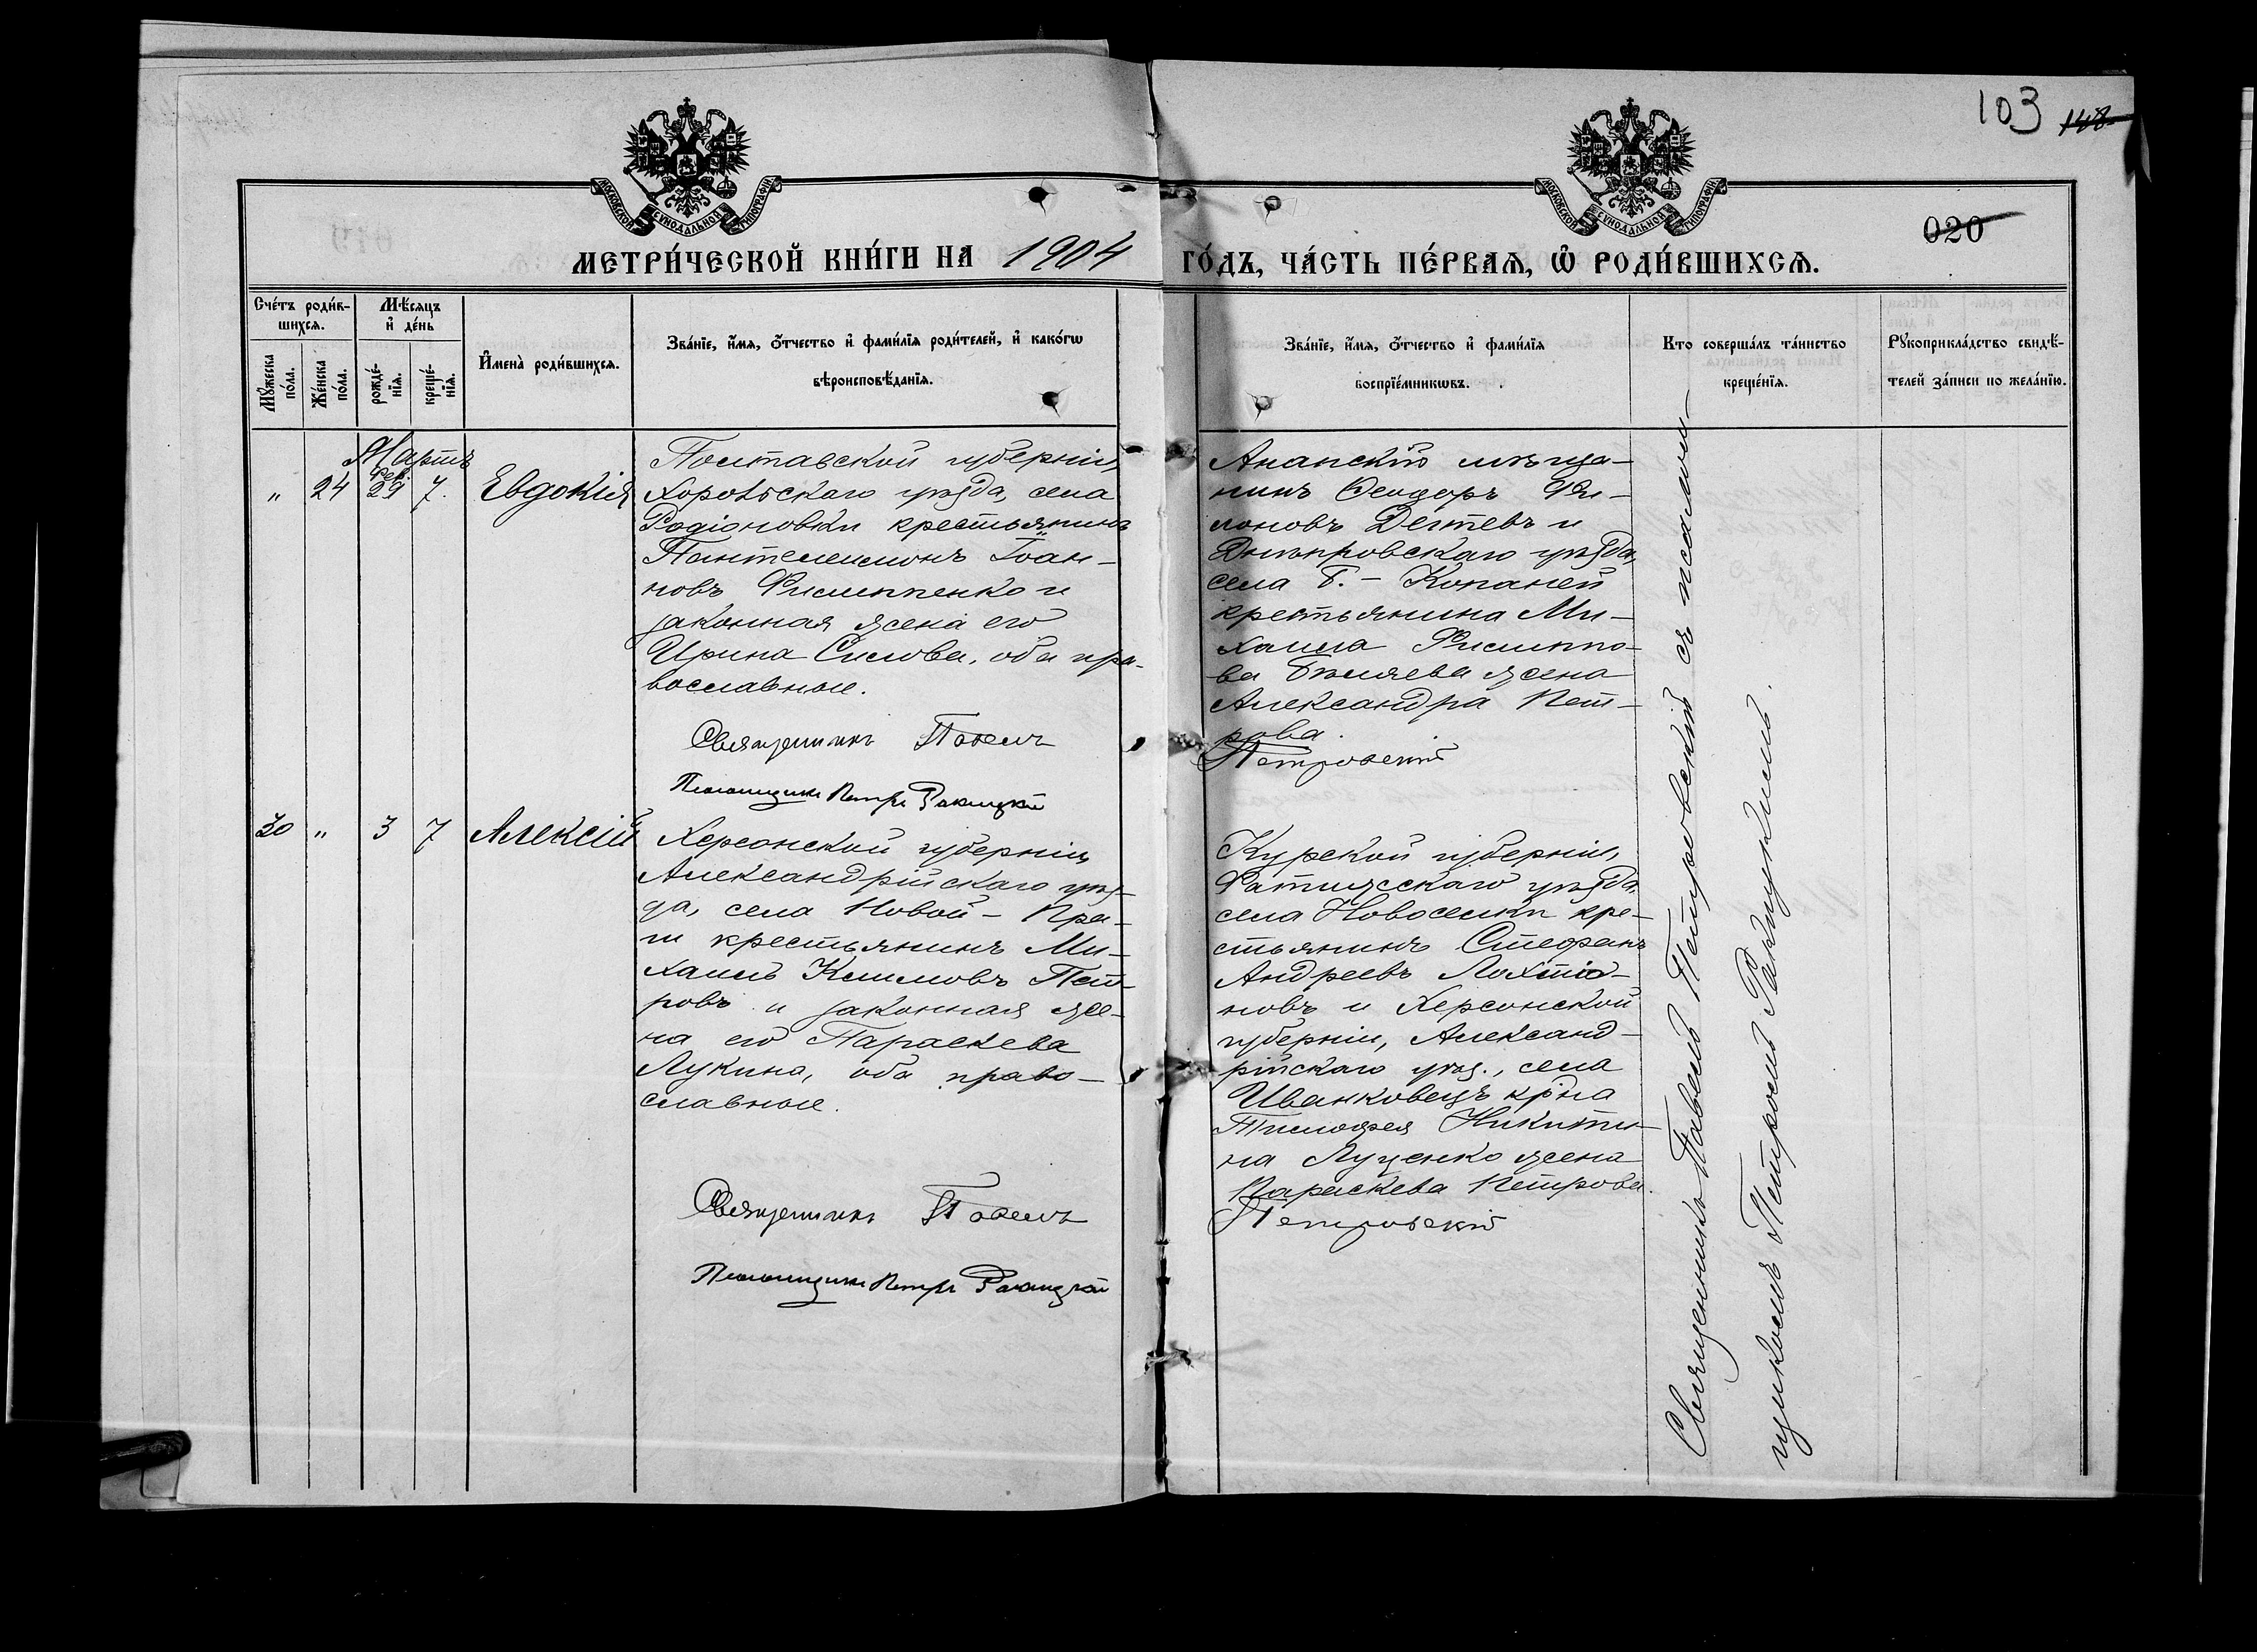 103 148
МОСКОВСКОЙ СѴНОДАЛЬНОЙ ТИПОГРАФІИ
МОСКОВСКОЙ СѴНОДАЛЬНОЙ ТИПОГРАФІИ
020
МЕТРИ́ЧЕСКОЙ КНИ́ГИ НА 1904 ГО́ДЪ, ЧА́СТЬ ПЕ́РВАЯ, Ѽ РОДИ́ВШИХСЯ.
Сче́тъ роди́в-
шихся.
Мѣ́сяцъ
и҆ де́нь
Мꙋ́жеска
по́ла.
Же́нска
по́ла.
рожде́-
нїя.
креще́-
нїя.
И҆мена̀ роди́вшихся.
Зва́нїе, и҆́мя, ѻ҆́тчество и҆ фами́лїя роди́телей, и҆ како́гѡ
вѣроисповѣ́данїя.
Зва́нїе, и҆́мя, ѻ҆́тчество и҆ фами́лїя
воспрїе́мникѡвъ.
Кто соверша́лъ та́инство
креще́нїя.
Рꙋкоприкла́дство свидѣ́-
телей за́писи по жела́нїю.
Мартъ
Фев.
" 24 29 7. Евдокія
Полтавской губерніи,
Хорольскаго уѣзда, села
Родіоновки крестьянинъ
Пантелеимонъ Іоан-
новъ Филиппенко и
законная жена его
Ирина Силова, оба пра-
вославные.
Священникъ Павелъ
Псаломщикъ Петръ Ракицкій
Ананскій мѣща-
нинъ Ѳеодоръ Фи-
лоновъ Дегтевъ и
Днѣпровскаго уѣзда,
села Б.- Копаней
крестьянина Ми-
хаила Филиппо-
ва Бѣляева жена
Александра Пет-
рова.
Петровскій
30 " 3 7 Алексій
Херсонской губерніи,
Александрійскаго уѣз-
да, села Новой - Пра-
ги крестьянинъ Ми-
хаилъ Климовъ Пет-
ровъ и законная же-
на его Параскева
Лукина, оба право-
славные.
Священникъ Павелъ
Псаломщикъ Петръ Ракицкій
Курской губерніи,
Фатижскаго уѣзда,
села Новоселки кре-
стьянинъ Стефанъ
Андреевъ Лохтіо-
новъ и Херсонской
губерніи, Александ-
рійскаго уѣз., села
Иванковецъ кр-на
Тимофея Никити-
на Луценко жена
Параскева Петрова.
Петровскій
Священникъ Павелъ Петровскій съ псалом-
щикомъ Петромъ Ракицкимъ.